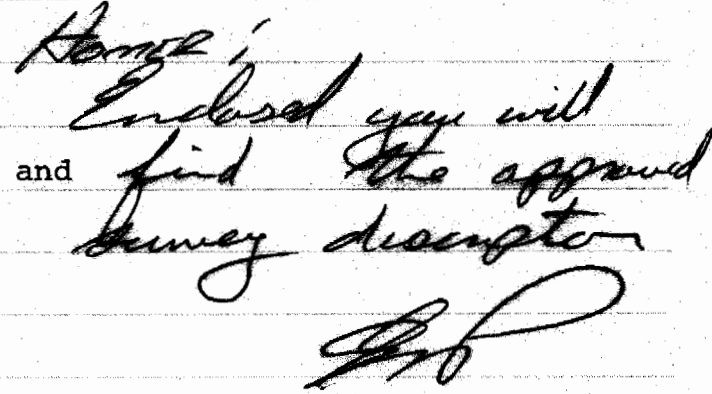 Honor;
Enclosed you will
and find the approved
survey description